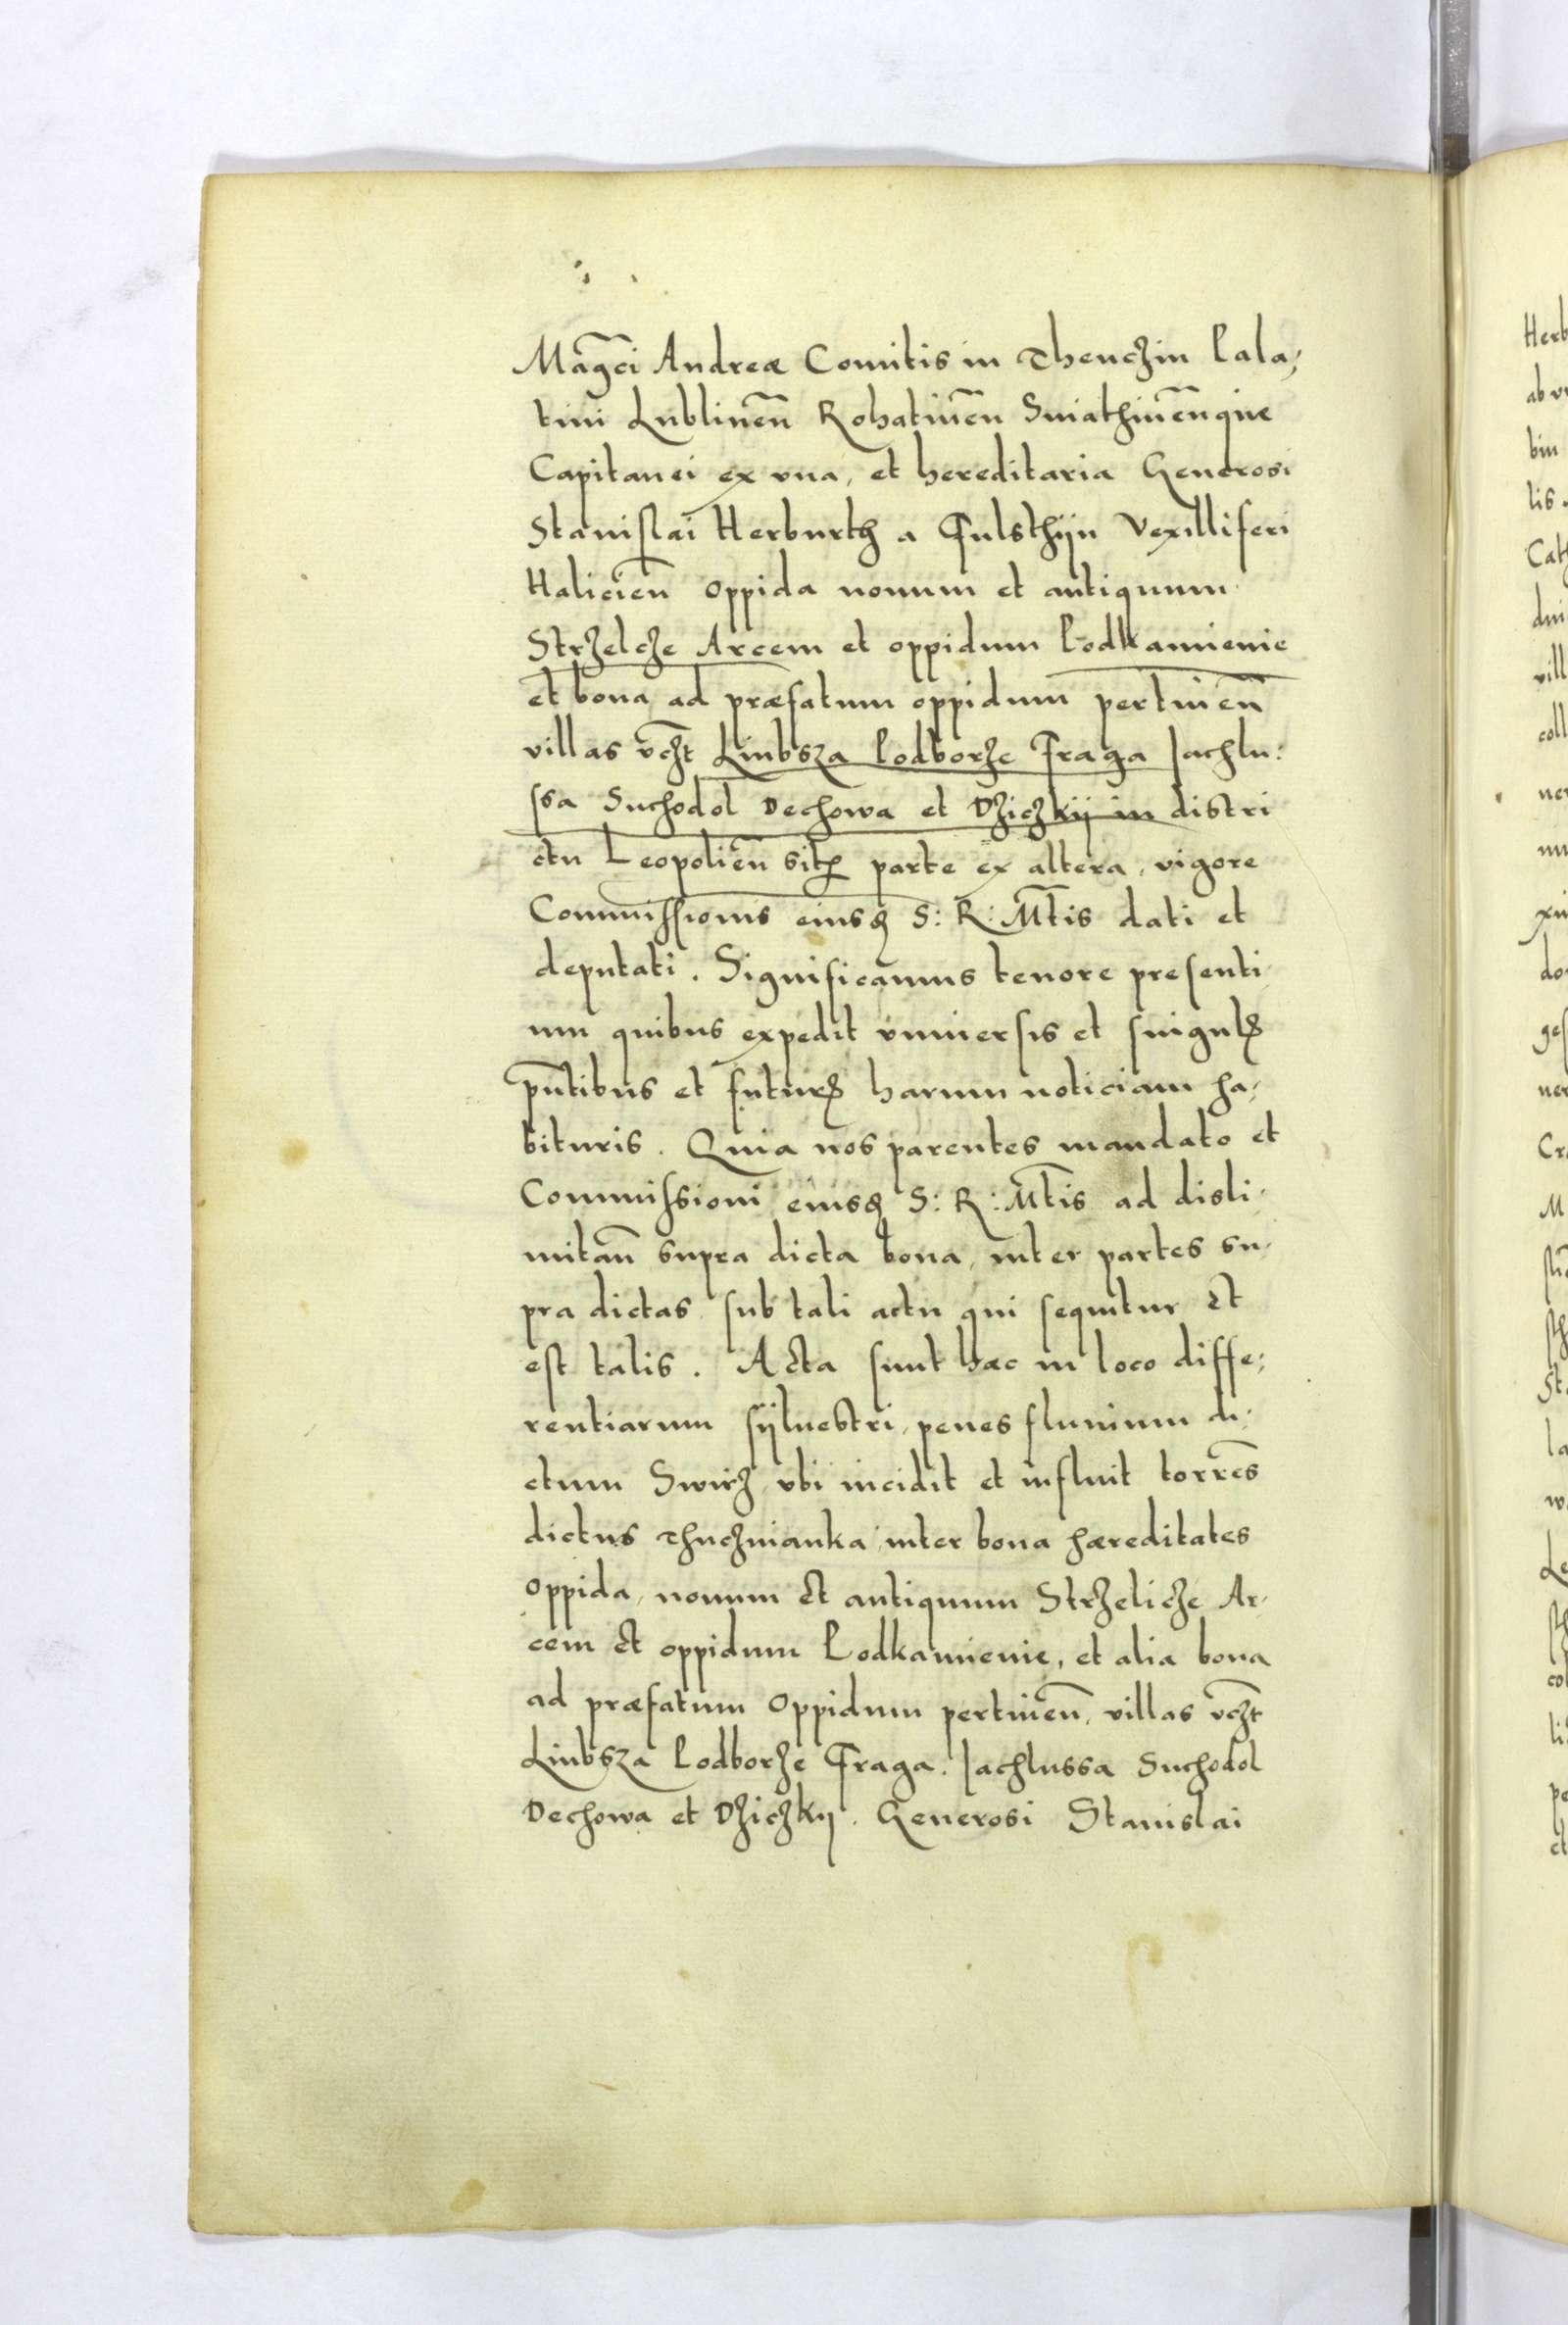 Magc̃i Andreæ Comitis in Thenchin Pala,
tini Lublineñ Rohatineñ Sniathineñque
Capitanei ex vna, et hereditaria Generosi
Stanislai Herburth a Fulsthijn Vexilliferi
Halicieñ oppida nouum et antiquum
Strzelcze Arcem et oppidum Podkamienie
et bona ad præfatum oppidum pertineñ
villas vczt Liubsza Podborze Fraga Jachlu:
ssa Suchodol Dechowa et Dziczkij in distri
ctu Leopolieñ sitꝭ parte ex altera, vigore
Commissionis eiusdꝫ S: R: Mt̃is dati et
deputati. Significamus tenore presenti
um quibus expedit vniuersis et singulꝭ
pñtibus et futurꝭ harum noticiam ha,
bituris. Quia nos parentes mandato et
Commissioni eiusdꝫ S: R: Mt̃is ad disli,
mitañ supra dicta bona, inter partes su,
pra dictas sub tali actu qui sequitur et
est talis. Acta sunt hæc in loco diffe:
rentiarum sylvestri, penes fluuium di,
ctum Swirz, vbi incidit et influit torrẽs
dictus Thuchnianka inter bona hæreditates
oppida, nouum et antiquum Strzelicze Ar,
cem et oppidum Podkamienie, et alia bona
ad præfatum oppidum pertineñ, villas vczt
Liubsza Podborze Fraga. Jachlussa Suchodol
Dechowa et Dziczkij. Generosi Stanislai
Herb
ab v
bin
lis.
Cat
dni
vill
coll
do
Cra
M
St
la
Le
col
li
pe
ct